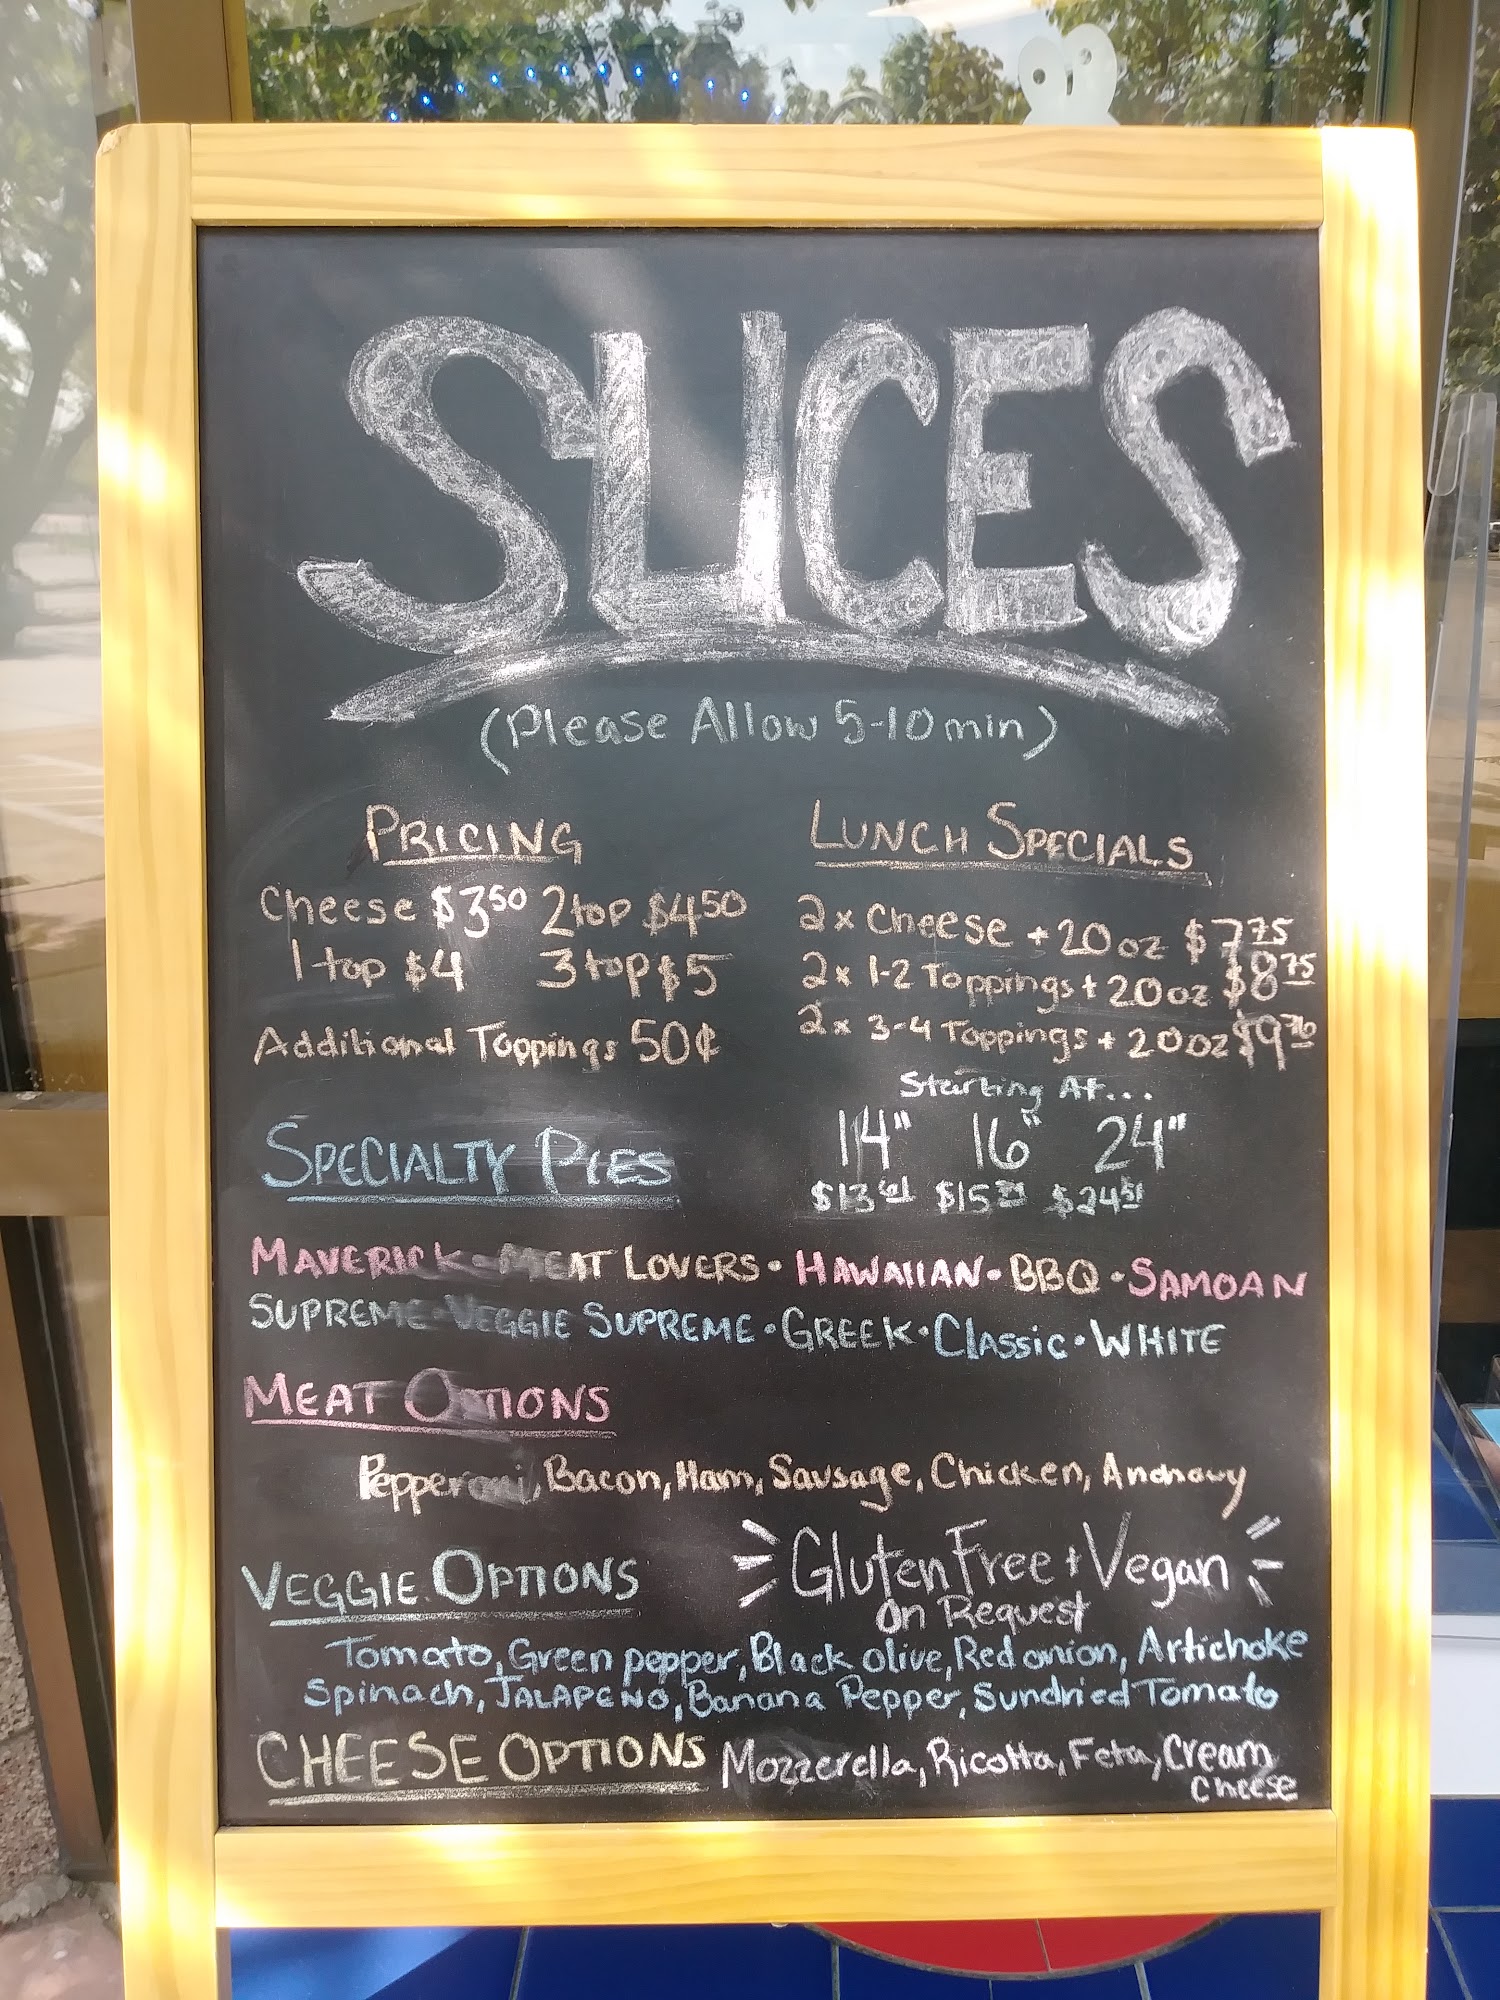 SLICES
(Please Allow 5-10 min)
PRICING
Cheese $3.50 2 top $4.50
1 top $4 3 top $5
Additional Toppings 50¢
LUNCH SPECIALS
2 x Cheese + 20 oz $7.75
2 x 1-2 Toppings + 20 oz $8.75
2 x 3-4 Toppings + 20 oz
Starting At...
14" 16" 24"
$24.51
SPECIALTY PIES
MAVERICK - MEAT LOVERS • HAWAIIAN • BBQ • SAMOAN
SUPREME • VEGGIE SUPREME • GREEK • Classic • WHITE
MEAT OPTIONS
Pepperoni, Bacon, Ham, Sausage, Chicken,
Gluten Free + Vegan
On Request
VEGGIE OPTIONS
Tomato, Green pepper, Black olive, Red onion, Artichoke
Spinach, JALAPENO, Banana Pepper, Sundried Tomato
CHEESE OPTIONS Mozzerella, Ricotta, Feta, Cream
cheese